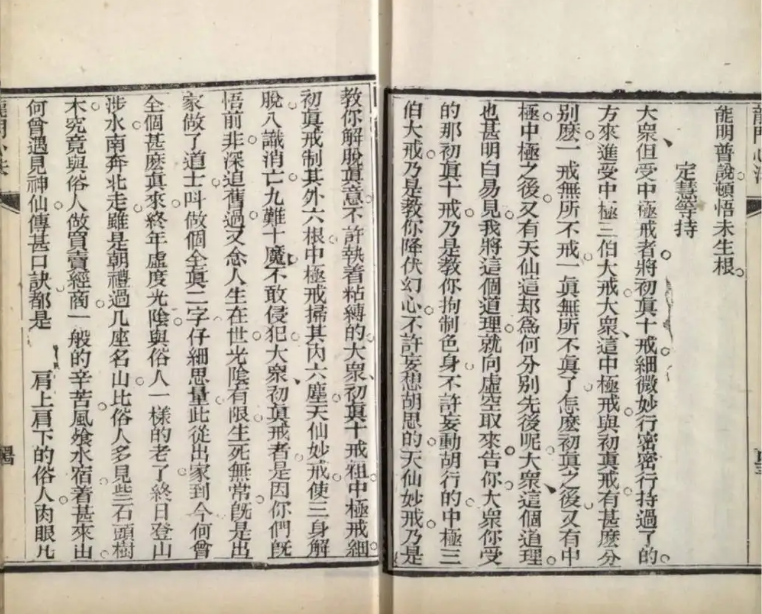 能明普說頓悟未生根
定慧等持
大衆但受中極戒者將初眞十戒細微妙行密密行持過了的
方來進受中極三伯大戒大衆這中極戒與初眞戒有甚麽分
別麽一戒無所不戒一眞無所不眞了怎麽初眞之後又有中
極中極之後又有天仙這却爲何分別先後呢大衆這個道理
也甚明白易見我將這個道理就向虛空取來告你大衆你受
的那初眞十戒乃是教你拘制色身不許妄動胡行的中極三
伯大戒乃是教你降伏幻心不許妄想胡思的天仙妙戒乃是
教你解脫眞意不許執着枯縛的大衆初眞十戒粗中極戒細
初眞戒制其外六根中極戒掃其內六塵天仙妙戒使三身解
脫八識消亡九難十魔不敢侵犯大衆初眞戒者是因你們旣
悟前非深追舊過又念人生在世光陰有限生死無常旣是出
家做了道士呌做個全眞二字仔細思量此從出家到今何曾
全個甚麽眞來終年虛度光陰與俗人一樣的老了終日登山
涉水南奔北走雖是朝禮過几座名山比俗人多見些石頭樹
木究竟與俗人做買賣經商一般的辛苦風飧水宿着甚來由
何曾遇見神仙傳甚口訣都是 肩上肩下的俗人肉眼凡